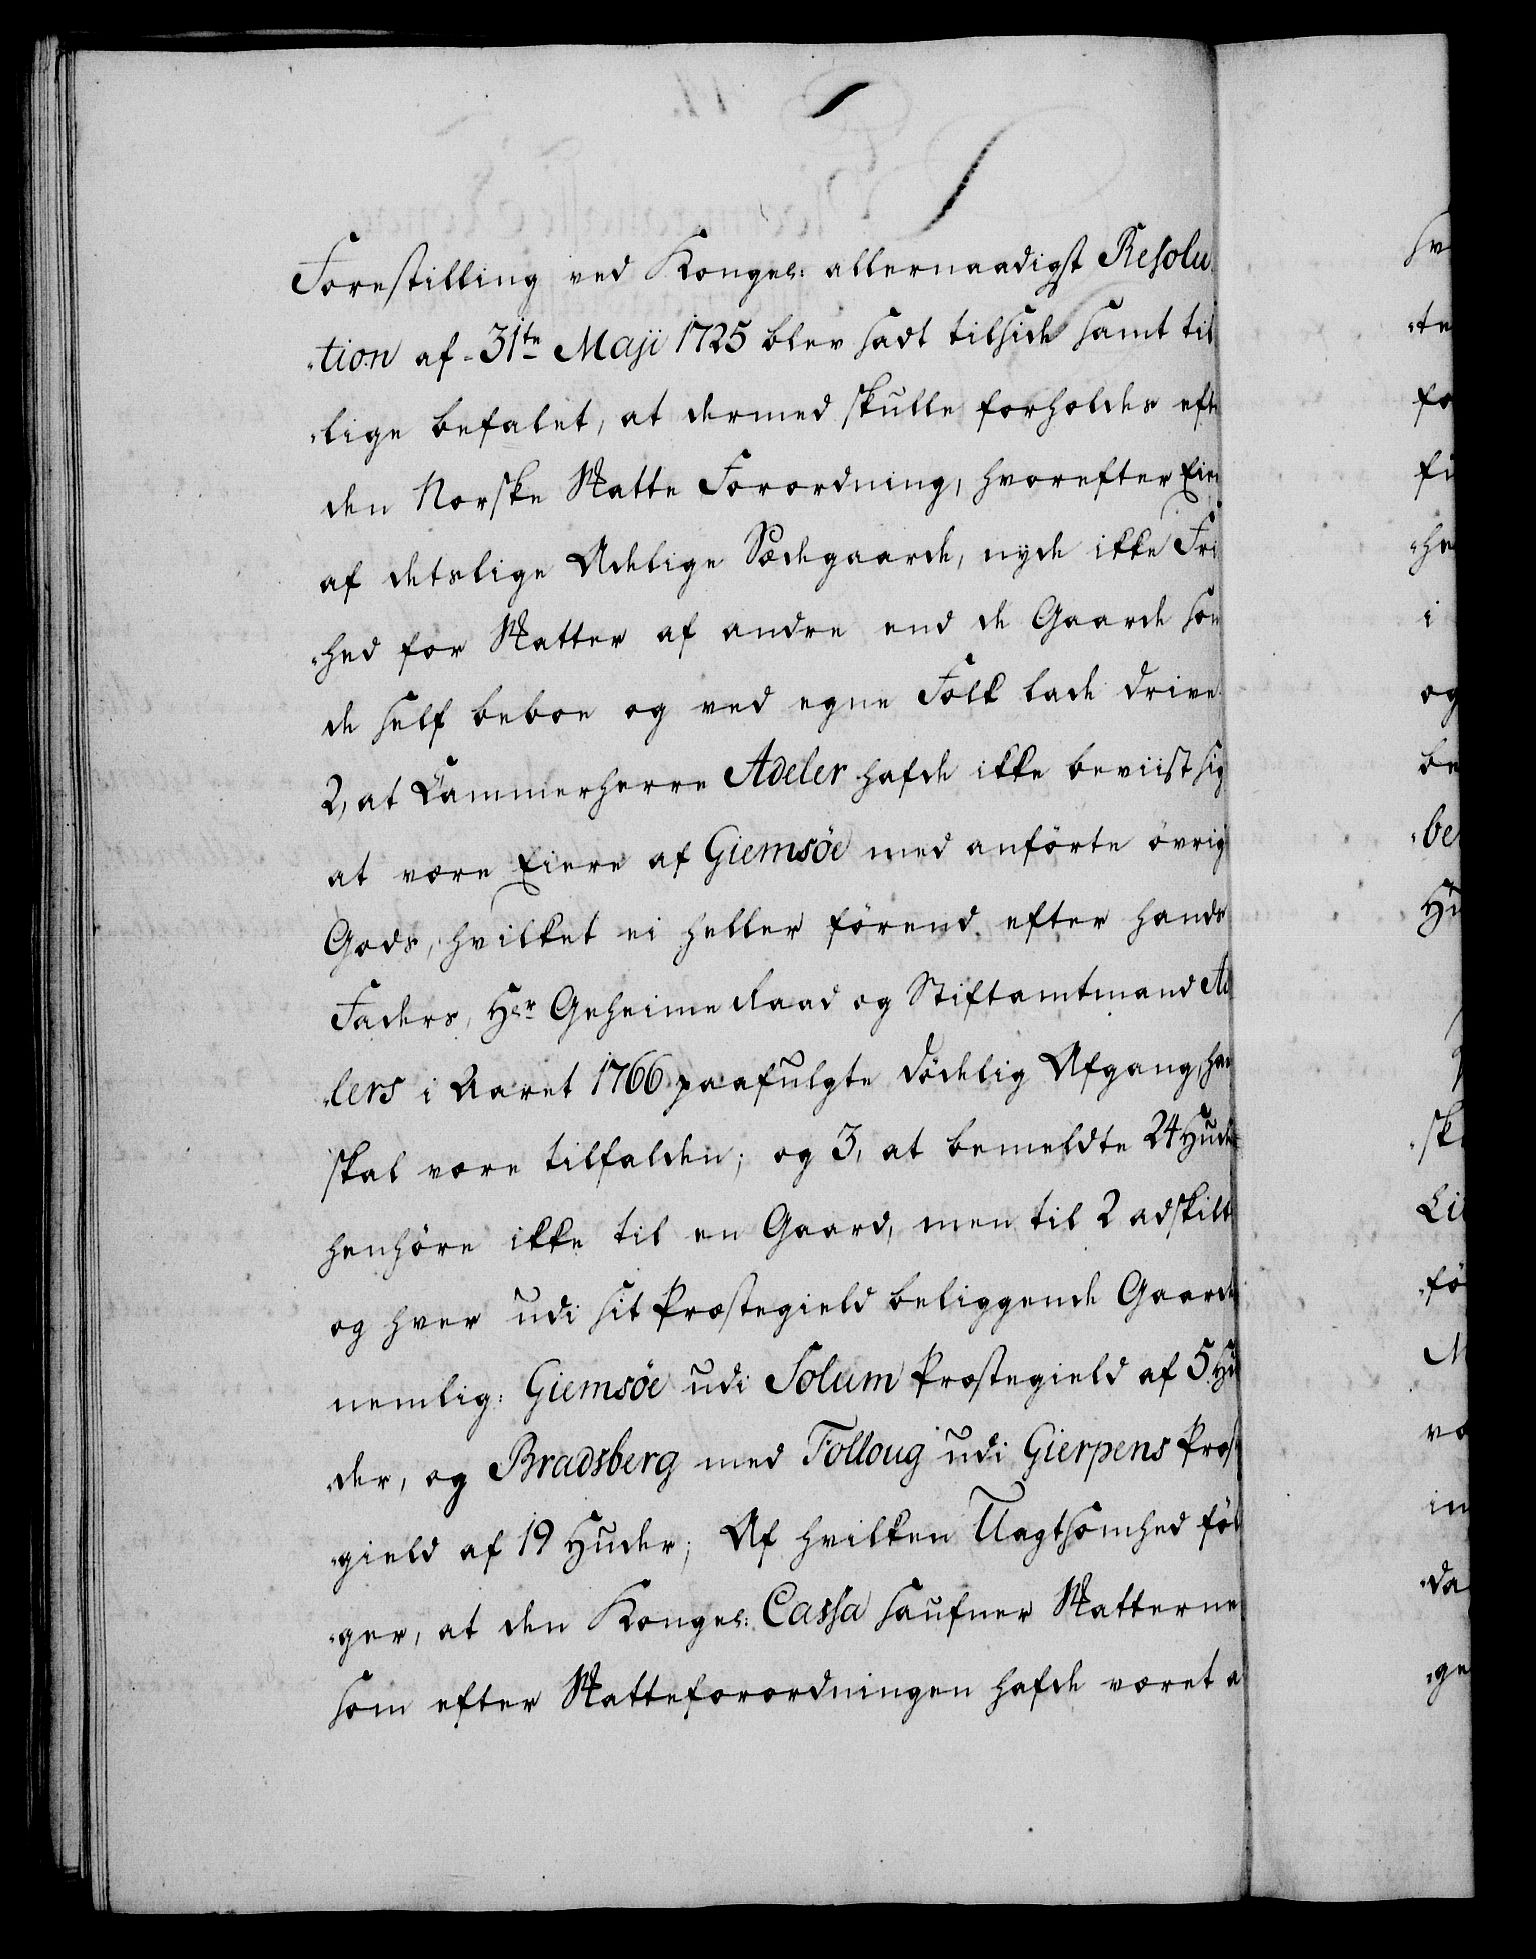 Forestilling ved Kongel: allernaadigst Resolu
-tion af 31te Maji 1725 blev sadt tilside samt til
-lige befalet, at dermed skulle forholdes efte
den Norske Skatte Forordning, hvorefter Eier
af detslige Adelige Sædegaarde, nyde ikke Fri
-hed for Skatter af andre end de Gaarde som
de self beboe og ved egne Folk lade drive.
2, at Cammerherre Adeler hafde ikke beviist sig
at være Eiere af Giemsöe med anförte övrig
Gods, hvilket ei heller förend efter hands
Faders, Hr Geheime Raad og Stiftamtmand Ad
-lers i Aaret 1766 paafulgte dödelig Afgang, ham
skal være tilfalden; og 3, at bemeldte 24 Hude
henhöre ikke til en Gaard, men til 2 adskilt
og hver udi sit Præstegield beliggende Gaarde
nemlig: Giemsöe udi Solum Præstegield af 5 Hu
-der, og Bradsberg med Folloug udi Gierpens Præst
-gield af 19 Huder; Af hvilken Uagtsomhed föl
-ger, at den Kongel: Cassa saufner Skatterne
som efter Skatteforordningen hafde været a